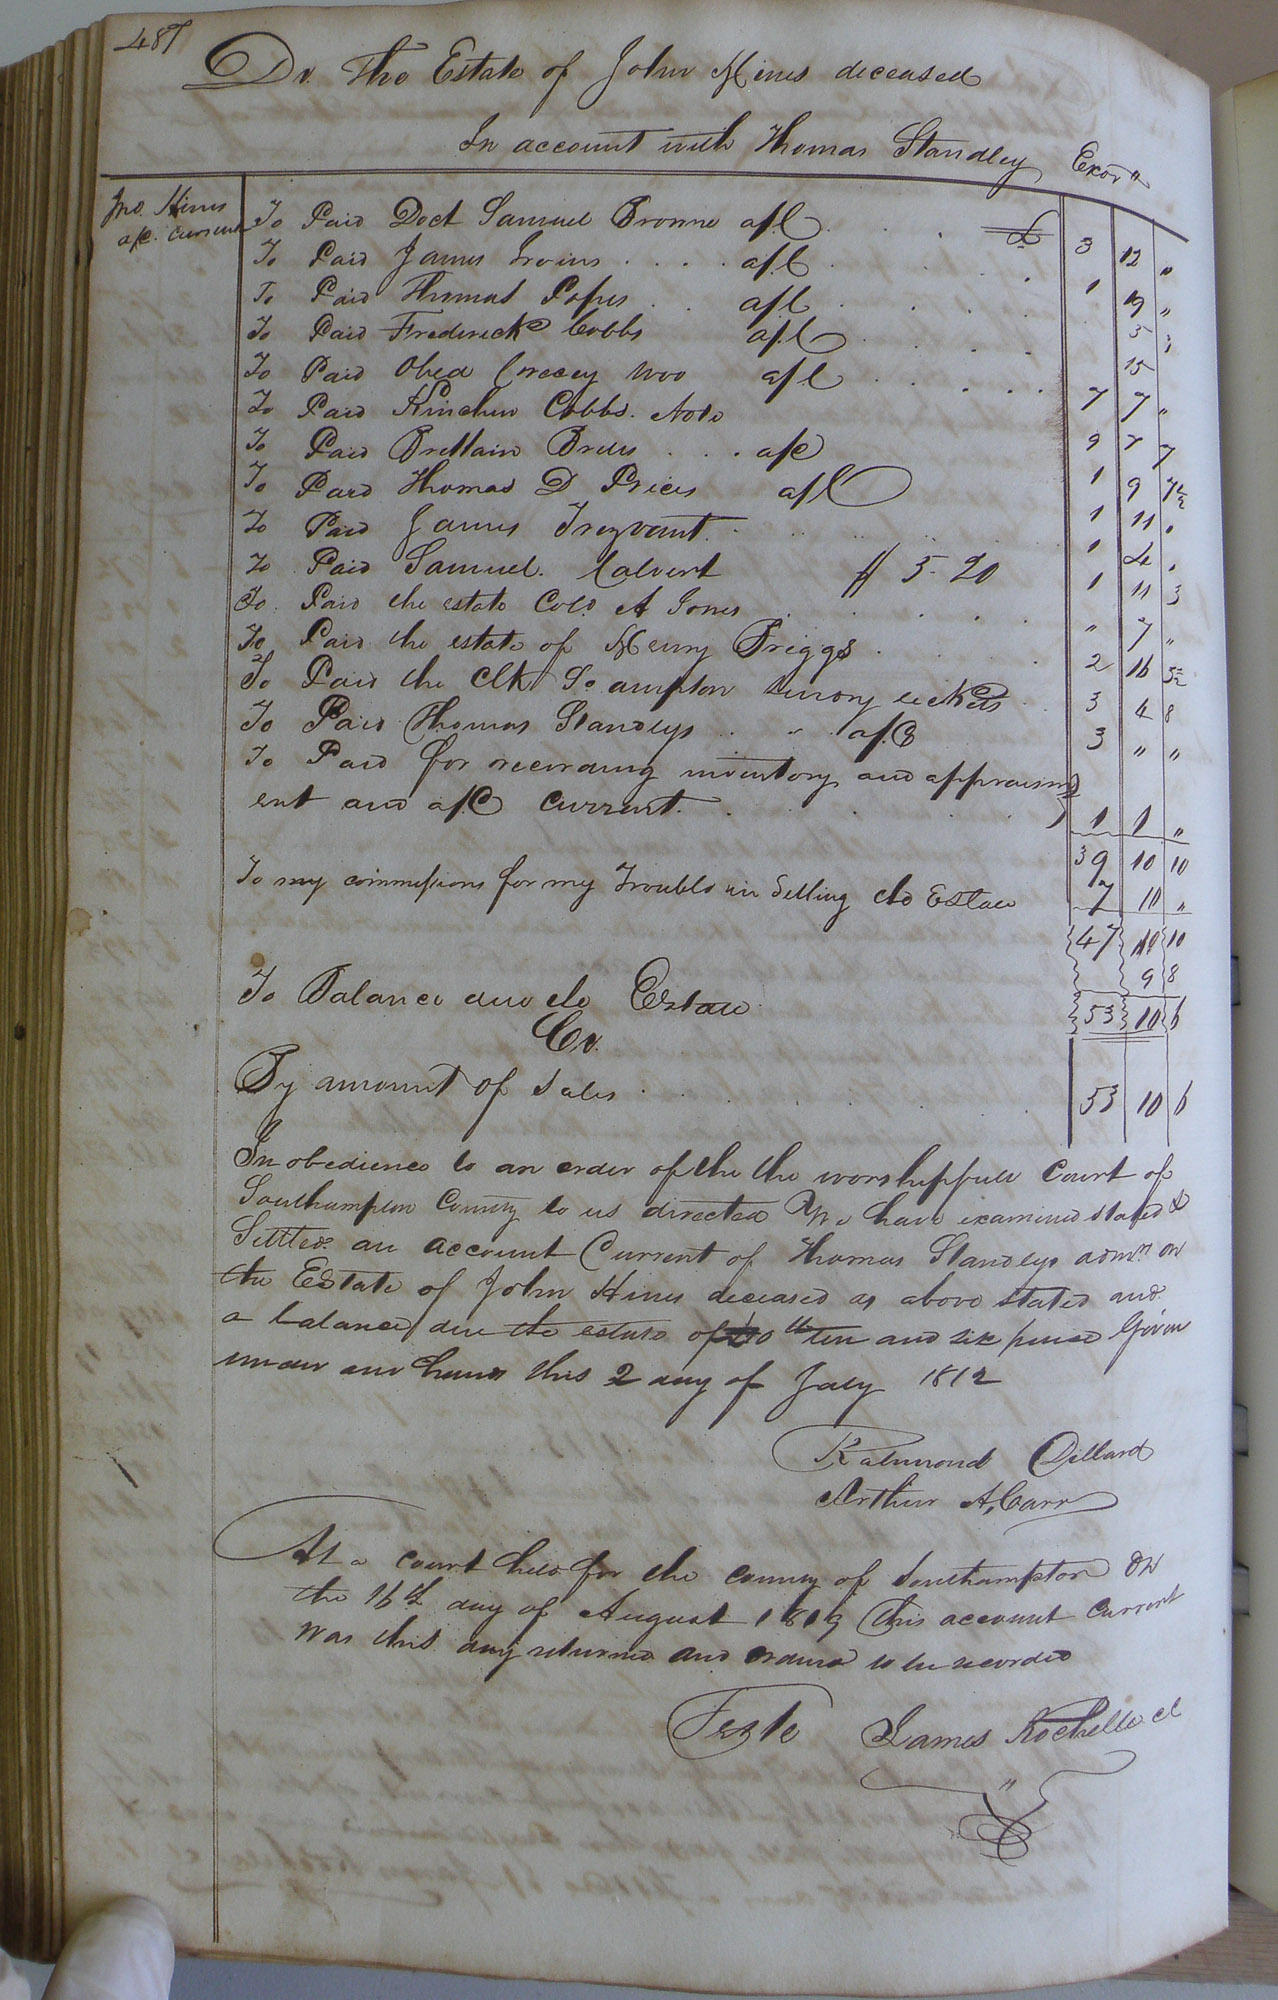 487
Dr. The Estate of John Hines deceased
In account with Thomas Standley Exor "
Jno. Hines
a/c. Current
To Paid Doct Samuel Browne a/c . . . £ 3 12 "
To Paid James Irvins . . . . a/c 1 19 "
To Paid Thomas Popes . . a/c 5 3
To Paid Frederick Cobbs a/c 15
To Paid Obed a/c 7 7 "
To Paid Kinchin Cobbs. Note 9 7 7
To Paid Brittain Britts . . . a/c 1 9 7½
To Paid Thomas D Prices a/c 1 11 "
To Paid James Trezvant. 1 4 "
To Paid Samuel. Calvert $ 5-20 1 11 3
To Paid the estate Colo. A Jones " 7 "
To Paid the estate of Henry Briggs 2 16 5½
To Paid the Clk So ampton tickets 3 4 8
To Paid Thomas Standleys . . a/c 3 " "
To Paid for recording inventory and appraism
ent and a/c Current. 1 1 "
39 10 10
To my commissions for my Trouble in Selling do Estate 7 10 "
47 10
9 8
To Balance due do Estate 53 10 6
Cr.
By amount of Sales 53 10 6
In obedience to an order of the the worshipfull Court of
Southampton County to us directed We have examined stated &
Settled an account Current of Thomas Standleys admr. on
the Estate of John Hines deceased as above stated and
a balance due the estate of ten and six pence Given
under our hands this 2 day of July 1812
Dillard
Arthur A, Carr
At a court held for the county of Southampton on
the 16th day of August 1819 this account Current
was this day returned and ordered to be recorded
Teste James Rochelle cl